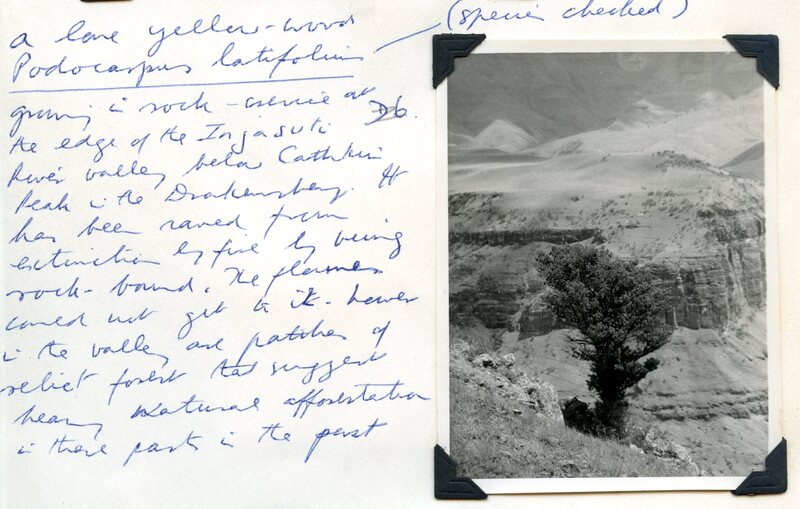 (species checked)
a lone yellow-wood
Podocarpus latifolius
growing in rock-crevice at
the edge of the Injasuti Db.
River valley below Cathkin
Peak in the Drakensberg. It
has been saved from
extinction by fire by being
rock-bound. The flames
could not get to it. Lower
in the valley are patches of
relict forest that suggest
heavy natural afforestation
in these parts in the past